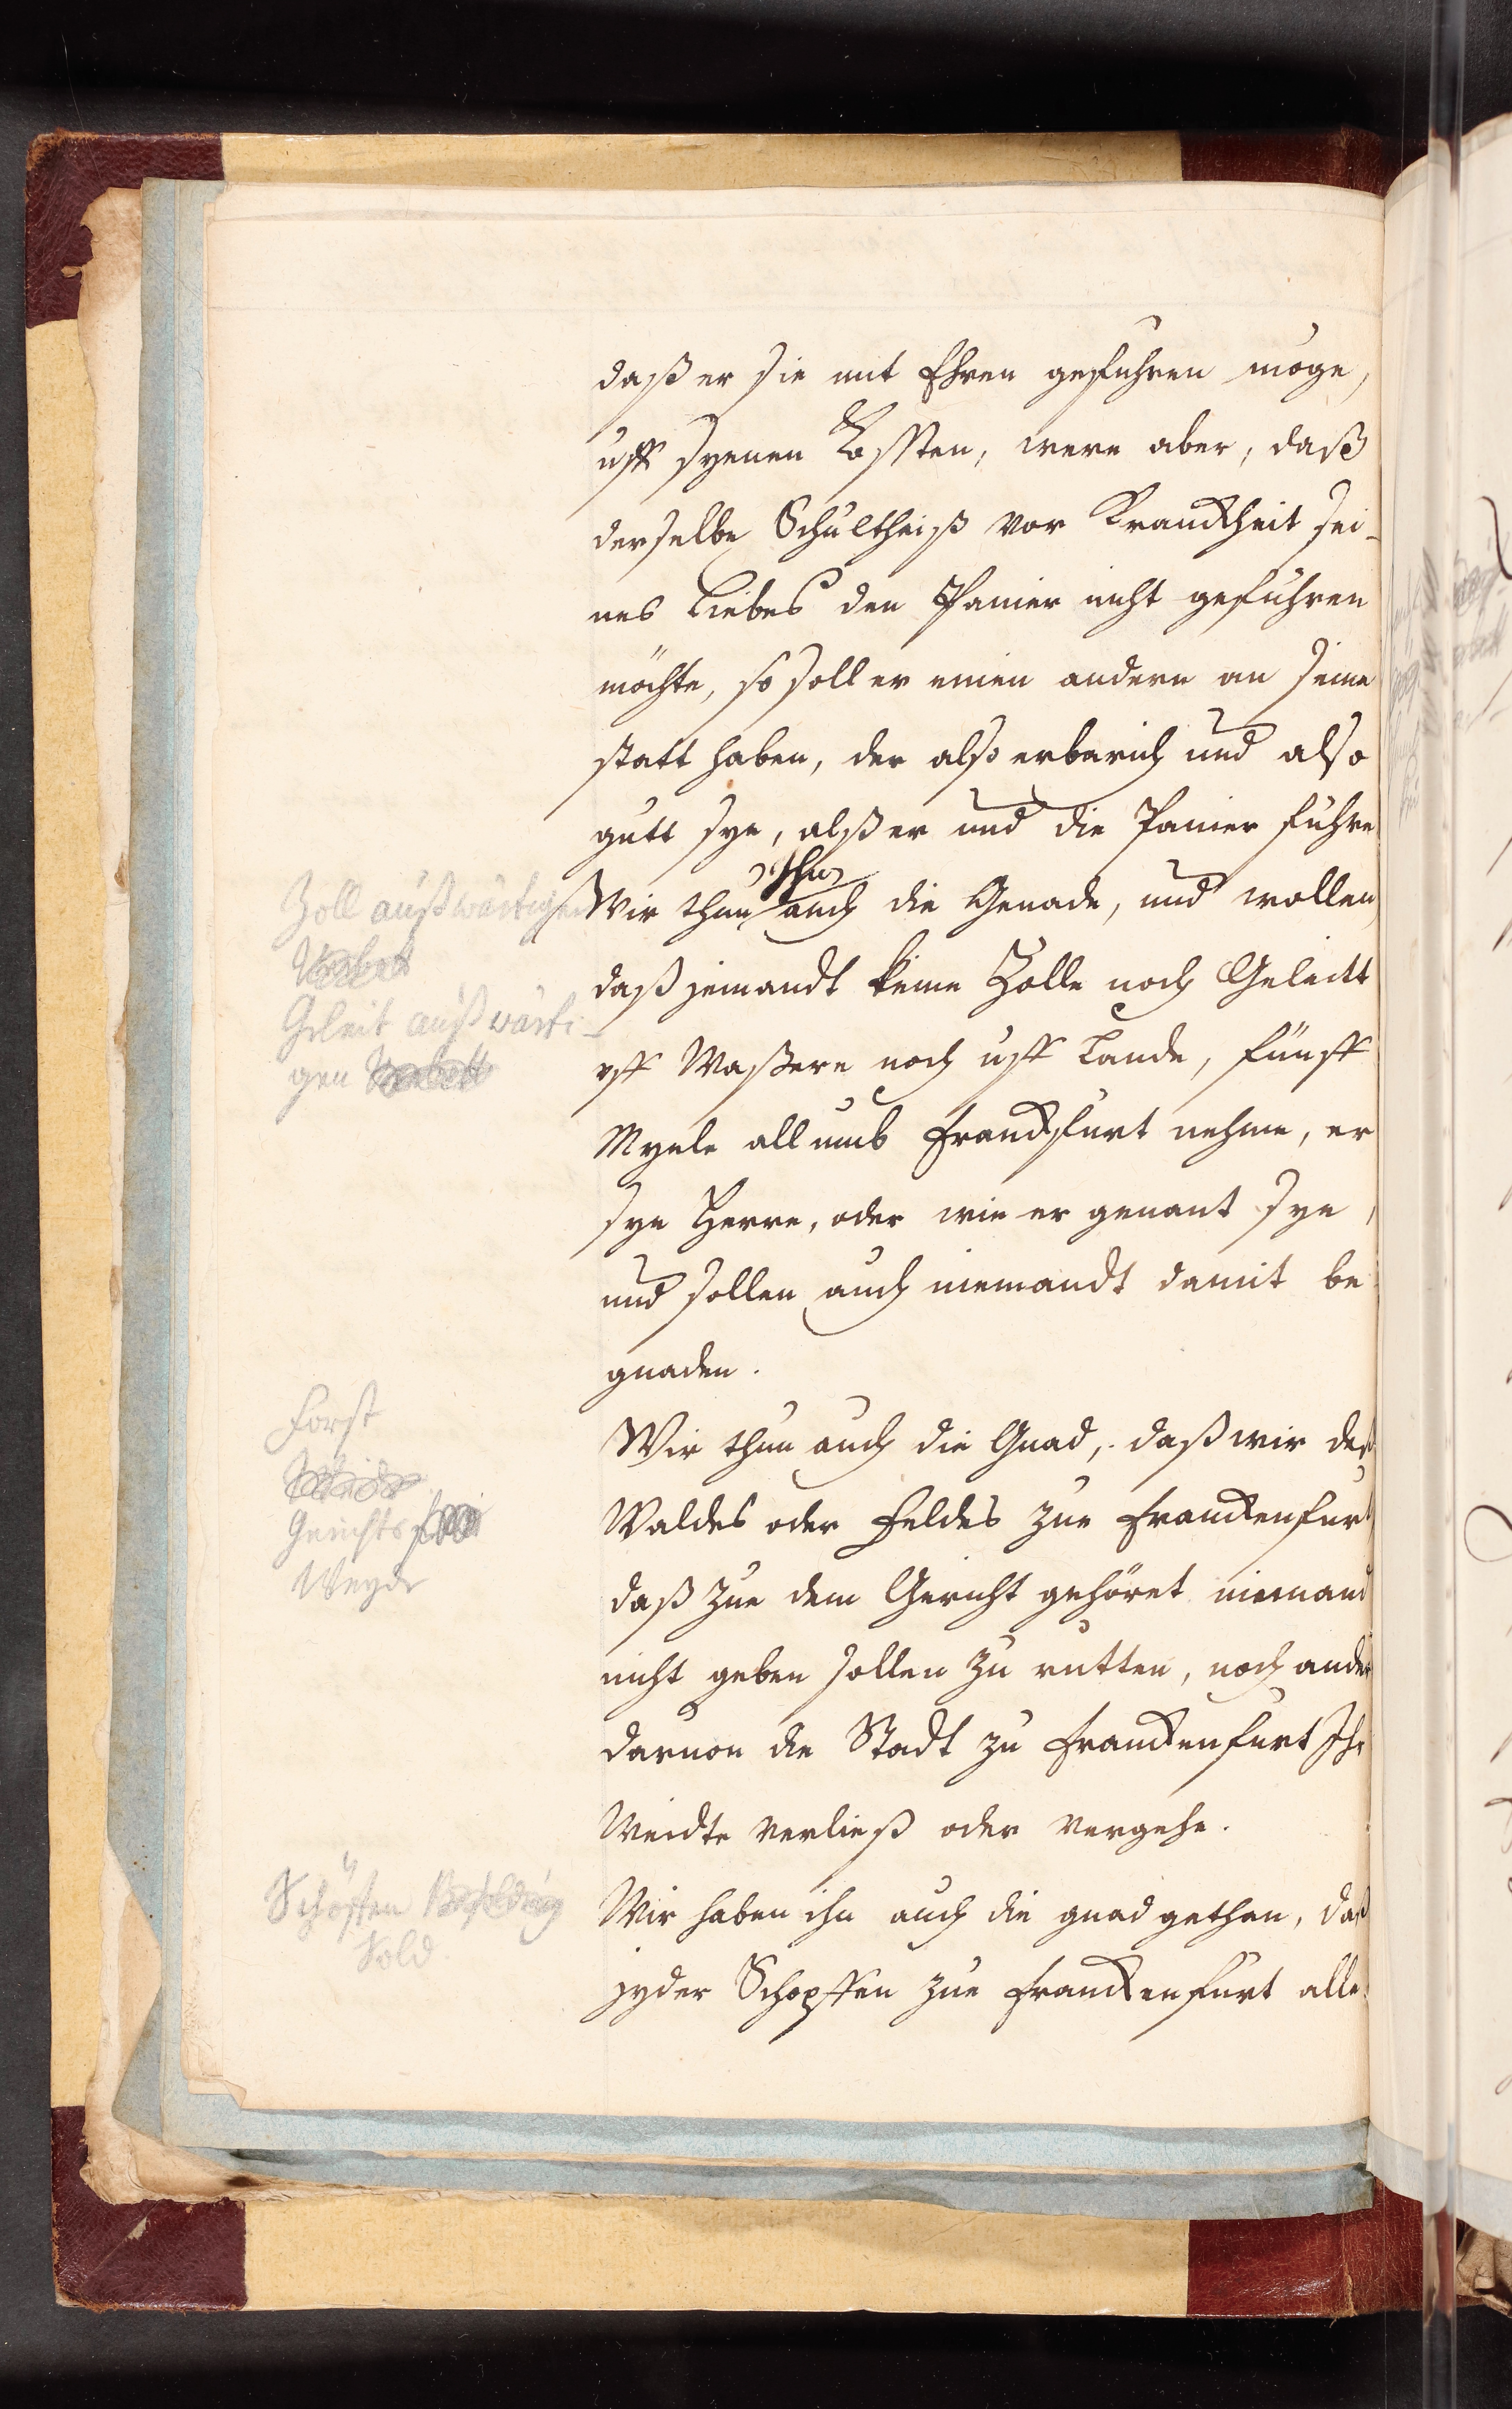 daß er sie mit Ehren gefuhren möge,
uff synen Kossten, were aber, daß
derselbe Schultheiß vor Kranckheit sei-
nes Liebes den Panier nicht gefuhren
möchte, so soll er einen andern an seine
statt haben, der also erbarich und also
gutt sye, alß er und die Panier fuhre
Wir thun ihn auch die Genade, und wollen
daß jemandt keine Zolle noch Geleitt
uff Waßere noch uff Lande, fünff
Myele all umb Franckfurt nehme, er
sye Herre, oder wie er genant sye,
und sollen auch niemandt damit be
gnaden.
Wir thun auch die Gnad, daß wir deß
Waldes oder Feldes zue Franckenfurt
daß zue dem Gericht gehöret niemand
nicht geben sollen zu rutten, noch ander
daruon die Stadt zu Franckenfurt Ihr
Weidte verließ oder vergehe.
Wir haben ihn auch die gnad gethan, daß
jyder Schopffen zue Franckenfurt alle
Zoll außwärtigen
Geleit außwärti-
gen
Forst
Gerichts
Weyde
Schöffen Besoldung
Sold